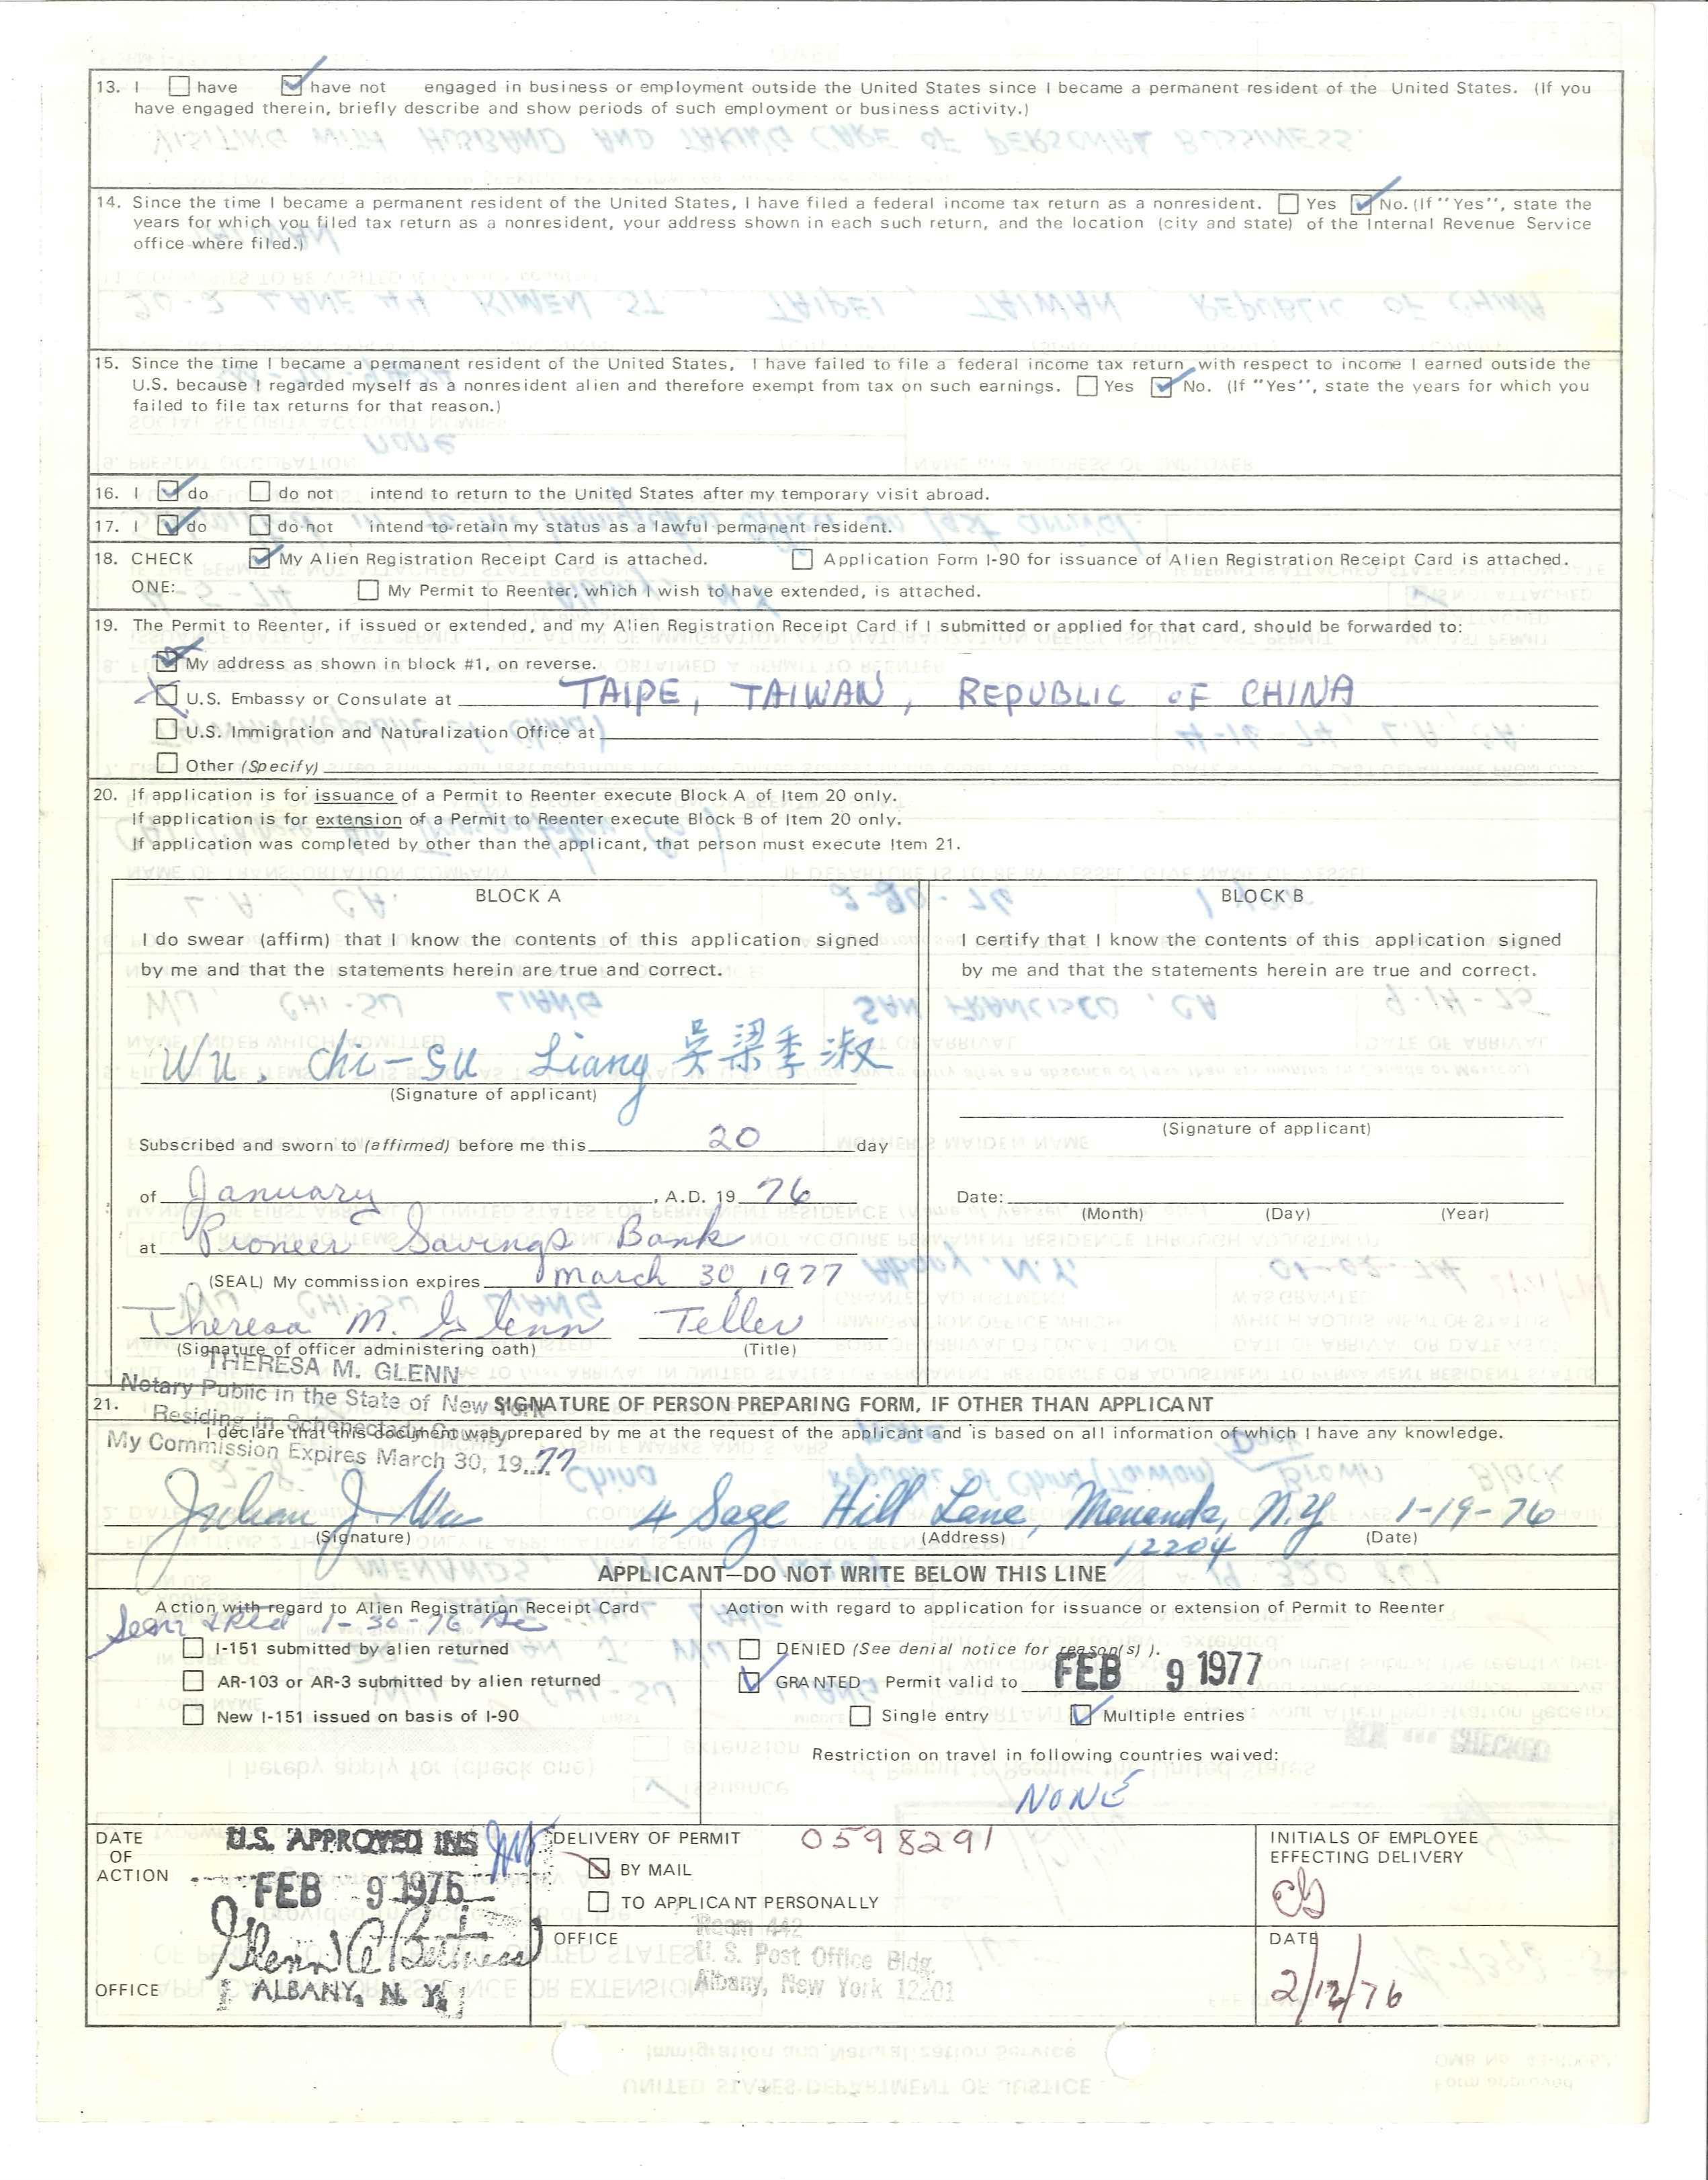 13. I have have not engaged in business or employment outside the United States since I became a permanent resident of the United States. (If you
have engaged therein, briefly describe and show periods of such employment or business activity.)
14. Since the time I became a permanent resident of the United States, I have filed a federal income tax return as a nonresident. Yes No. (If "Yes", state the
years for which you filed tax return as a nonresident, your address shown in each such return, and the location (city and state) of the Internal Revenue Service
office where filed.)
15. Since the time I became a permanent resident of the United States, I have failed to file a federal income tax return with respect to income I earned outside the
U.S. because I regarded myself as a nonresident alien and therefore exempt from tax on such earnings. Yes No. (If "Yes", state the years for which you
failed to file tax returns for that reason.)
16. I do do not intend to return to the United States after my temporary visit abroad.
17. I do do not intend to retain my status as a lawful permanent resident.
18. CHECK My Alien Registration Receipt Card is attached. Application Form I-90 for issuance of Alien Registration Receipt Card is attached.
ONE: My Permit to Reenter, which I wish to have extended, is attached.
19. The Permit to Reenter, if issued or extended, and my Alien Registration Receipt Card if I submitted or applied for that card, should be forwarded to:
My address as shown in block #1, on reverse.
U.S. Embassy or Consulate at TAIPE, TAIWAN, REPUBLIC OF CHINA
U.S. Immigration and Naturalization Office at
Other (Specify)
20. If application is for issuance of a Permit to Reenter execute Block A of Item 20 only.
If application is for extension of a Permit to Reenter execute Block B of Item 20 only.
If application was completed by other than the applicant, that person must execute Item 21.
BLOCK A
I do swear (affirm) that I know the contents of this application signed
by me and that the statements herein are true and correct.
Wu, Chi-Su Liang 吳梁季淑
(Signature of applicant)
Subscribed and sworn to (affirmed) before me this 20 day
of January, A.D. 19 76
at Pioneer Savings Bank
(SEAL) My commission expires March 30, 1977
Theresa M. Glenn Teller
(Signature of officer administering oath) (Title)
THERESA M. GLENN
Notary Public in the State of New York
Residing in Schenectady County
My Commission Expires March 30, 19..77
BLOCK B
I certify that I know the contents of this application signed
by me and that the statements herein are true and correct.
(Signature of applicant)
Date:
(Month) (Day) (Year)
21. SIGNATURE OF PERSON PREPARING FORM, IF OTHER THAN APPLICANT
I declare that this document was prepared by me at the request of the applicant and is based on all information of which I have any knowledge.
Julian J. Wu 4 Sage Hill Lane, Menands, N.Y. 1-19-76
12204
(Signature) (Address) (Date)
APPLICANT—DO NOT WRITE BELOW THIS LINE
Action with regard to Alien Registration Receipt Card
1-30-76
I-151 submitted by alien returned
AR-103 or AR-3 submitted by alien returned
New I-151 issued on basis of I-90
Action with regard to application for issuance or extension of Permit to Reenter
DENIED (See denial notice for reason(s) ).
GRANTED - Permit valid to FEB 9 1977
Single entry Multiple entries
Restriction on travel in following countries waived:
NONE
DATE
OF
ACTION
U.S. APPROVED INS
FEB 9 1976
OFFICE
ALBANY, N.Y.
DELIVERY OF PERMIT 0598291
BY MAIL
TO APPLICANT PERSONALLY
OFFICE
Room 442
U. S. Post Office Bldg.
Albany, New York 12201
INITIALS OF EMPLOYEE
EFFECTING DELIVERY
DATE
2/12/76